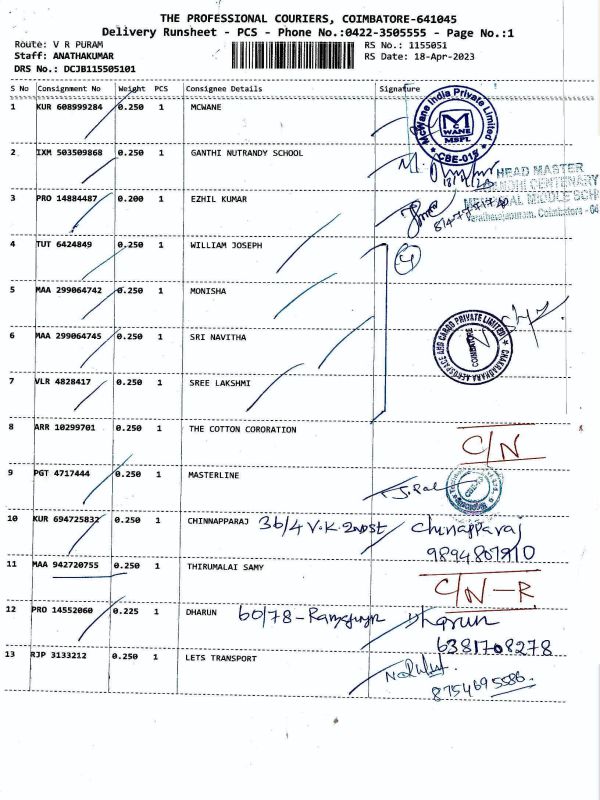 THE PROFESSIONAL COURIERS, COIMBATORE-641045
Delivery Runsheet - PCS - Phone No.:0422-3505555 - Page No.:1
Route: V R PURAM RS No.: 1155051
Staff: ANATHAKUMAR RS Date: 18-Apr-2023
DRS No.: DCJB115505101
S No Consignment No Weight PCS Consignee Details Signature
1 KUR 608999284 0.250 1 MCWANE
McWane India Private Limited
MC WANE
MSPL
CBE-015
2 IXM 503509868 0.250 1 GANTHI NUTRANDY SCHOOL
HEAD MASTER
3 PRO 14884487 0.200 1 EZHIL KUMAR
CENTENARY
MIDDLE SCH
Coimbatore - 64
4 TUT 6424849 0.250 1 WILLIAM JOSEPH
4
5 MAA 299064742 0.250 1 MONISHA
6 MAA 299064745 0.250 1 SRI NAVITHA
CHAKRADHARA AEROSPACE AND CARGO PRIVATE LIMITED
COIMBATORE
7 VLR 4828417 0.250 1 SREE LAKSHMI
8 ARR 10299701 0.250 1 THE COTTON CORORATION
C/N
9 PGT 4717444 0.250 1 MASTERLINE
J.Pal
10 KUR 694725832 0.250 1 CHINNAPPARAJ 36/4 V.K. 2nd St Chinapparaj
9894807910
11 MAA 942720755 0.250 1 THIRUMALAI SAMY
C/N - R
12 PRO 14552060 0.225 1 DHARUN 60/78 - Dharun
6381708278
13 RJP 3133212 0.250 1 LETS TRANSPORT
8754695586